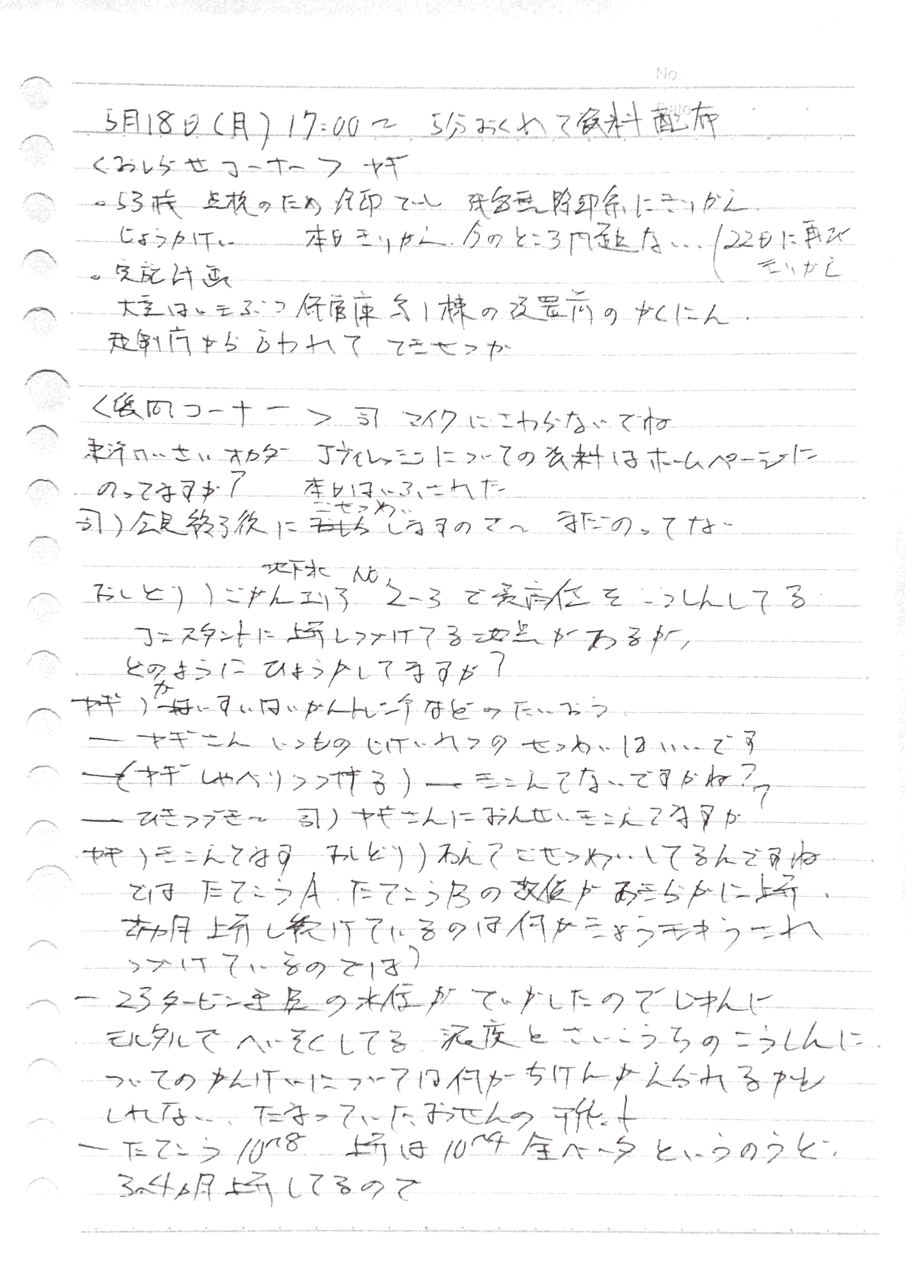 No.
5月18日(月) 17:00〜 5分おくれて資料配布
<おしらせコーナー> ヤギ
・53檪 点検のため
じょうかけい 本日きりかえ 今のところ問題ない (22日に再び
きりかえ
・実施計画
大型はいきぶつ保管庫 第1棟の設置前のかくにん.
規制庁から言われて てきせつか
<質問コーナー> 司 マイクにさわらないでね
東洋けいざいオカダ Jヴィレッジについての資料はホームページに
のってますか? 本日はいふされた
ごせつめい
司) 会見終了後に しますのさ〜 まだのってない
地下水 No,
おしどり) ごがんエリア 2-3で最高値をこうしんしてる
コンスタントに上昇しつづけてる地点があるが,
どのようにひょうかしてますか?
ヤギ) かいすいはいかんトレンチなどのたいおう
― ヤギさん いつもの じけいれつの せつめいはいいです
―(ヤギしゃべりつづける) ― きこえてないですかね?
― ひきつづき〜 司) ヤギさんにおんせいきこえてますか
ヤギ) きこえてます おしどり) あえてごせつめいしてるんですね
では たてこうA. たてこうBの数値があきらかに上昇.
上昇し続けているのは何かきょうきゅうされ
つづけているのでは?
― 23タービン建屋の水位がていかしたのでじゅんに
モルタルで へいそくしてる 濃度とさいこうちのこうしんに
ついてのかんけいについては何かちけんがえられるかも
しれない. たまっていたおせんの
― たてこう 10^8 上昇は10^4 全ベータというのうど.
3.4ヵ月上昇してるので